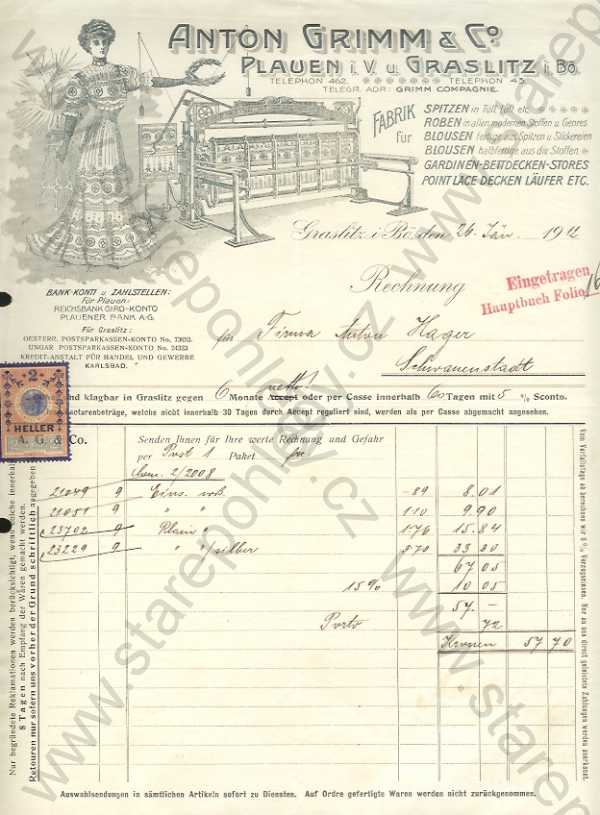 ANTON GRIMM & Co.
PLAUEN i. V. u. GRASLITZ i. Bö.
TELEPHON 462. TELEPHON 45.
TELEGR. ADR: GRIMM COMPAGNIE.
FABRIK für
SPITZEN in Tüll, füll etc.
ROBEN in allen modernen Stoffen u. Genres
BLOUSEN fertige aus Spitzen u. Stickereien
BLOUSEN halbfertige aus die. Stoffen.
GARDINEN-BETTDECKEN-STORES
POINT LACE DECKEN LÄUFER ETC.
Graslitz i. Bö., den 26. Jän. 1912
Rechnung
Eingetragen
Hauptbuch Folio
BANK-KONTI u. ZAHLSTELLEN:
Für Plauen:
REICHSBANK GIRO-KONTO
PLAUENER BANK A.G.
Für Graslitz:
OESTERR. POSTSPARKASSEN-KONTO No.
UNGAR. POSTSPARKASSEN-KONTO No.
KREDIT-ANSTALT FÜR HANDEL UND GEWERBE
KARLSBAD.
für Firma Anton Hager
Schwanenstadt
2
HELLER
A. G. & Co.
und klagbar in Graslitz gegen 6 Monate Accept netto! oder per Casse innerhalb 60 Tagen mit 5 % Sconto.
Facturenbeträge, welche nicht innerhalb 30 Tagen durch Accept reguliert sind, werden als per Casse abgemacht angesehen.
Senden Ihnen für Ihre werte Rechnung und Gefahr
per Post 1 Paket
2/2008
21049 9 Eins. -89 8.01
21051 9 " " 1.10 9.90
23702 9 1.76 15.84
23229 9 " "/silber 3.70 33.30
67 05
15% 10 05
57.-
Porto 72
Kronen 57 70
Nur begründete Reklamationen werden berücksichtigt, wenn solche innerhalb
8 Tagen nach Empfang der Waren gemacht werden.
Retouren nur sofern uns vorher der Grund schriftlich angegeben
vom Verfalltage ab berechnen wir 6% Verzugszinsen. Nur an uns direct geleistete Zahlungen werden anerkannt.
Auswahlsendungen in sämtlichen Artikeln sofort zu Diensten. Auf Ordre gefertigte Waren werden nicht zurückgenommen.
www.starepohledy.cz